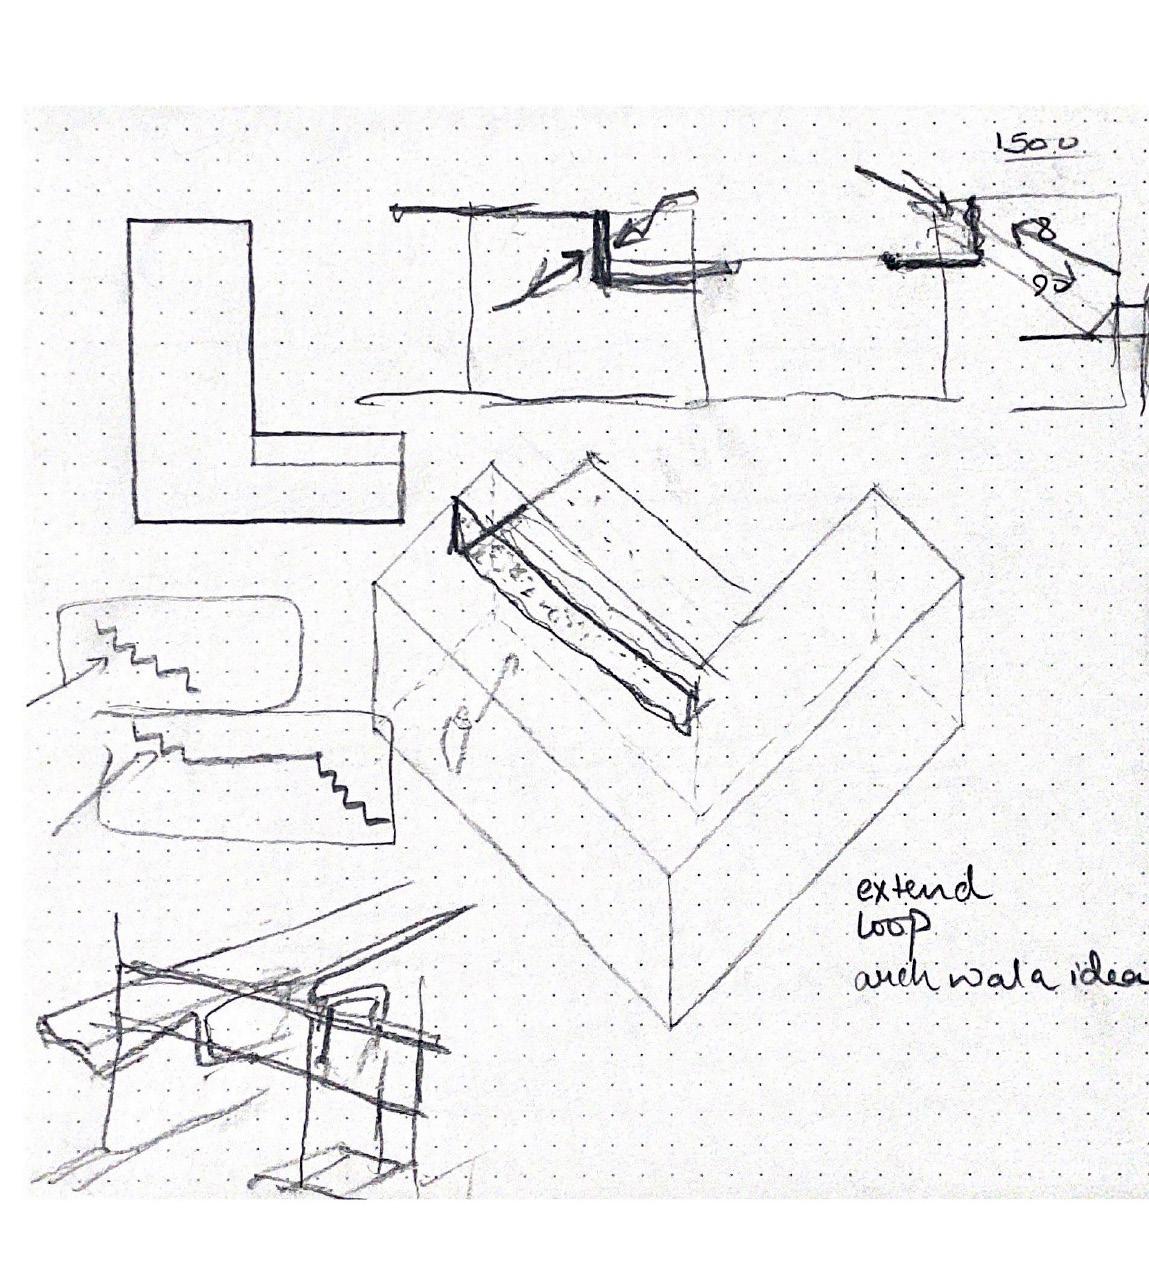 1500
8
9
extend
loop
arch wala idea